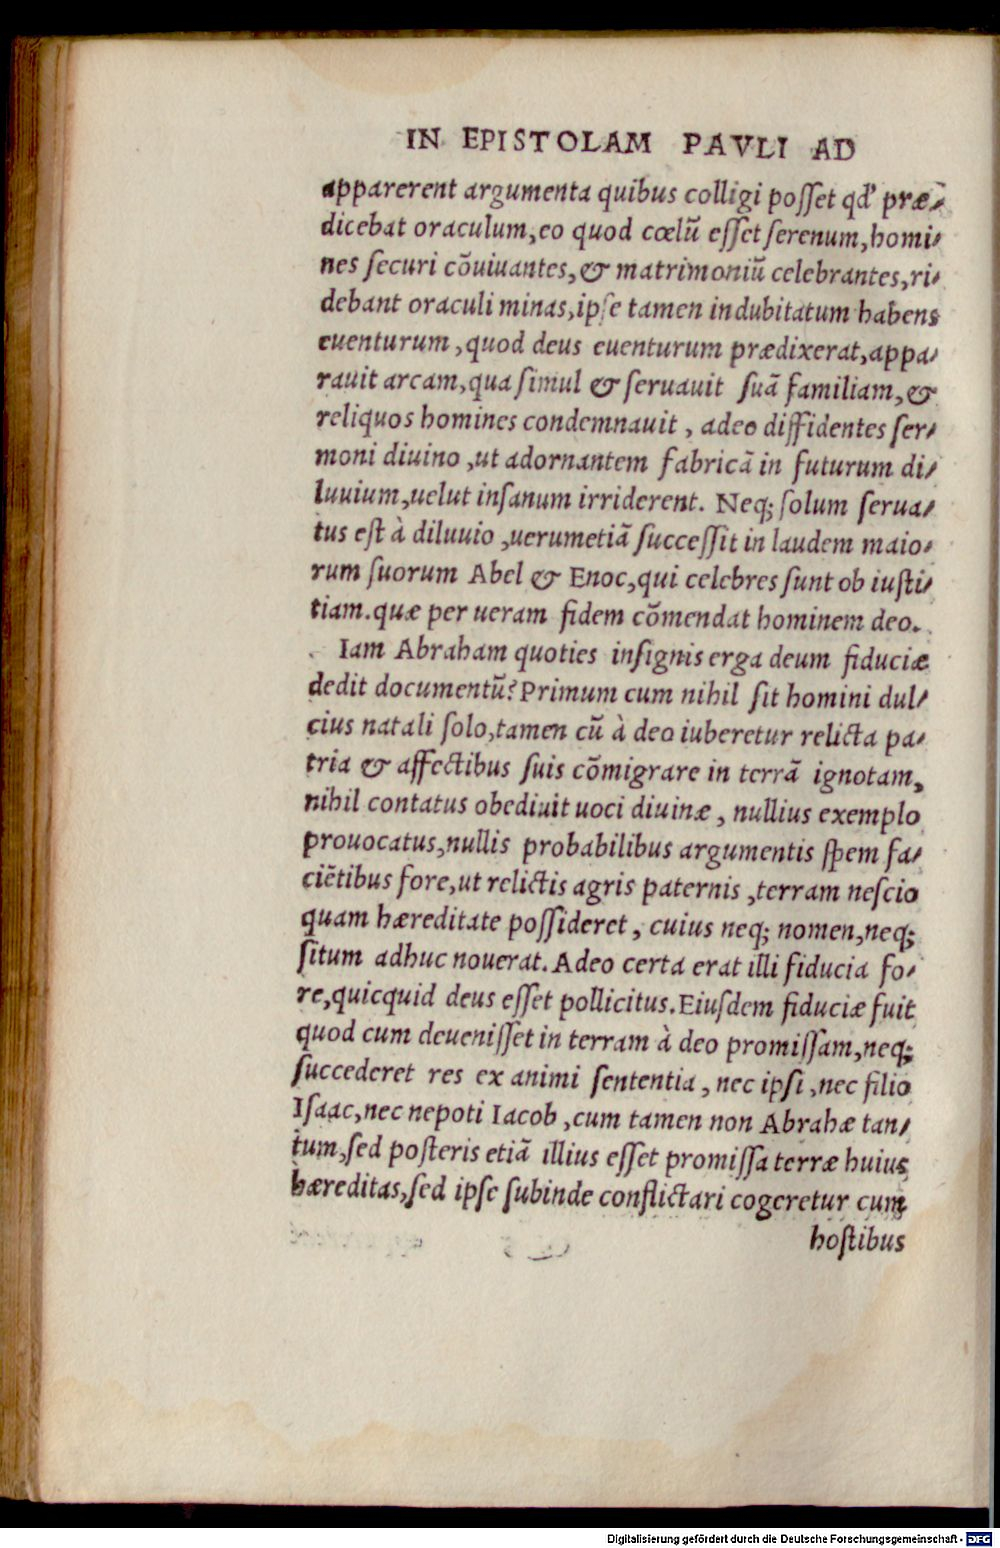 IN EPISTOLAM PAVLI AD
apparerent argumenta quibus colligi poſſet qđ præ-
dicebat oraculum,eo quod cœlũ eſſet ſerenum,homi-
nes ſecuri cõuiuantes,& matrimoniũ celebrantes,ri-
debant oraculi minas,ipſe tamen indubitatum habens
euenturum,quod deus euenturum prædixerat,appa-
rauit arcam,qua ſimul & ſeruauit ſuã familiam,&
reliquos homines condemnauit, adeo diffidentes ſer-
moni diuino,ut adornantem fabricã in futurum di-
luuium,uelut inſanum irriderent. Neq; ſolum ſerua-
tus eſt à diluuio,uerumetiã ſucceſſit in laudem maio-
rum ſuorum Abel & Enoc,qui celebres ſunt ob iuſti-
tiam.quæ per ueram fidem cõmendat hominem deo.
Iam Abraham quoties inſignis erga deum fiduciæ
dedit documentũ?Primum cum nihil ſit homini dul-
cius natali ſolo,tamen cũ à deo iuberetur relicta pa-
tria & affectibus ſuis cõmigrare in terrã ignotam,
nihil contatus obediuit uoci diuinæ, nullius exemplo
prouocatus,nullis probabilibus argumentis ſpem fa-
ciẽtibus fore,ut relictis agris paternis,terram neſcio
quam hæreditate poſſideret, cuius neq; nomen,neq;
ſitum adhuc nouerat.Adeo certa erat illi fiducia fo-
re,quicquid deus eſſet pollicitus.Eiuſdem fiduciæ fuit
quod cum deueniſſet in terram à deo promiſſam,neq;
ſuccederet res ex animi ſententia, nec ipſi,nec filio
Iſaac,nec nepoti Iacob,cum tamen non Abrahæ tan-
tum,ſed poſteris etiã illius eſſet promiſſa terræ huius
hæreditas,ſed ipſe ſubinde conflictari cogeretur cum
hoſtibus
Digitalisierung gefördert durch die Deutsche Forschungsgemeinschaft - DFG